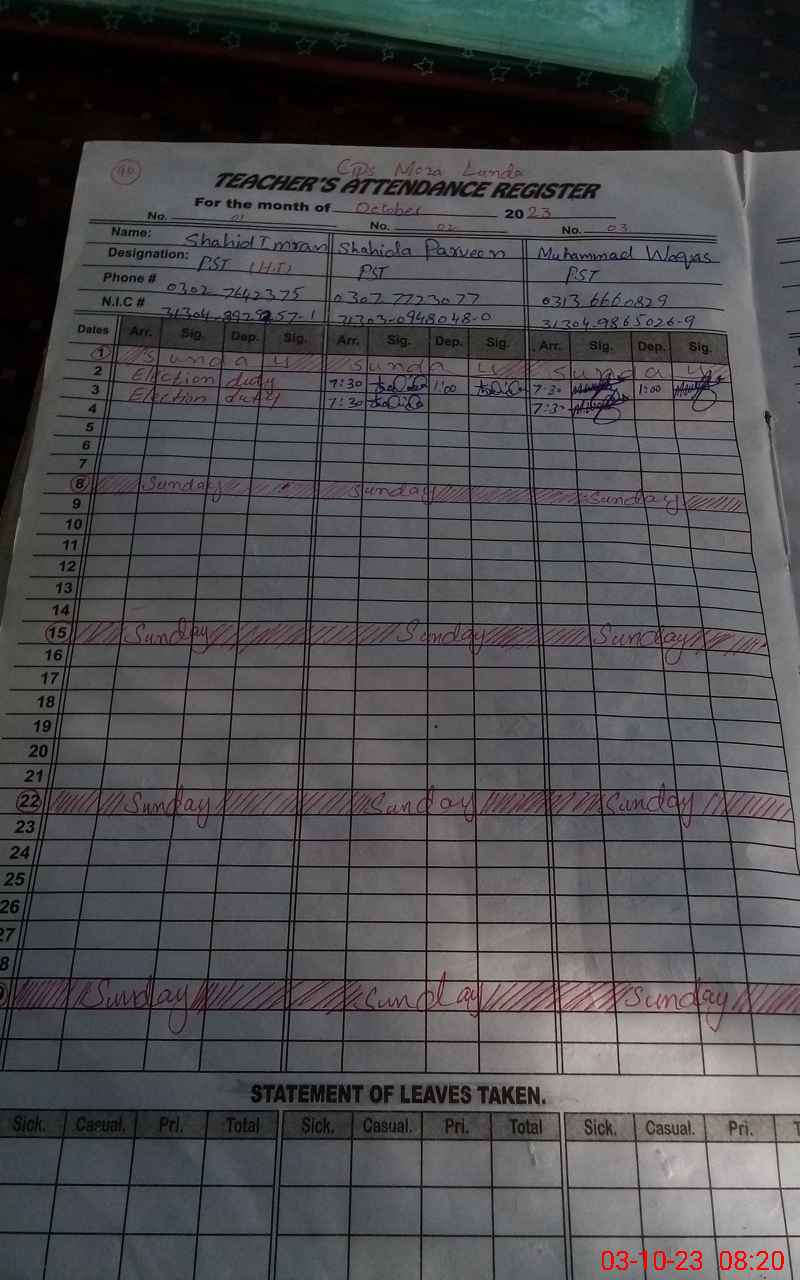 90
GPS Moza Lunda
TEACHER'S ATTENDANCE REGISTER
For the month of October 2023
No. 01 No. 02 No. 03
Name: Shahid Imran Shahida Parveen Muhammad Waqas
Designation: PST (H.T) PST PST
Phone # 0302 7642375 0307 7723077 0313 6660829
N.I.C # 31303-0948048-0 31304-9865026-9
Dates Arr. Sig. Dep. Sig. Arr. Sig. Dep. Sig. Arr. Sig. Dep. Sig.
1 Sunday Sunday Sunday
2 Election duty 7:30 1:00 7:30 1:00
3 Election duty 7:30 7:30
4
5
6
7
8 Sunday Sunday Sunday
9
10
11
12
13
14
15 Sunday Sunday Sunday
16
17
18
19
20
21
22 Sunday Sunday Sunday
23
24
25
26
27
8
Sunday Sunday Sunday
STATEMENT OF LEAVES TAKEN.
Sick. Casual. Pri. Total Sick. Casual. Pri. Total Sick. Casual. Pri. T
03-10-23 08:20